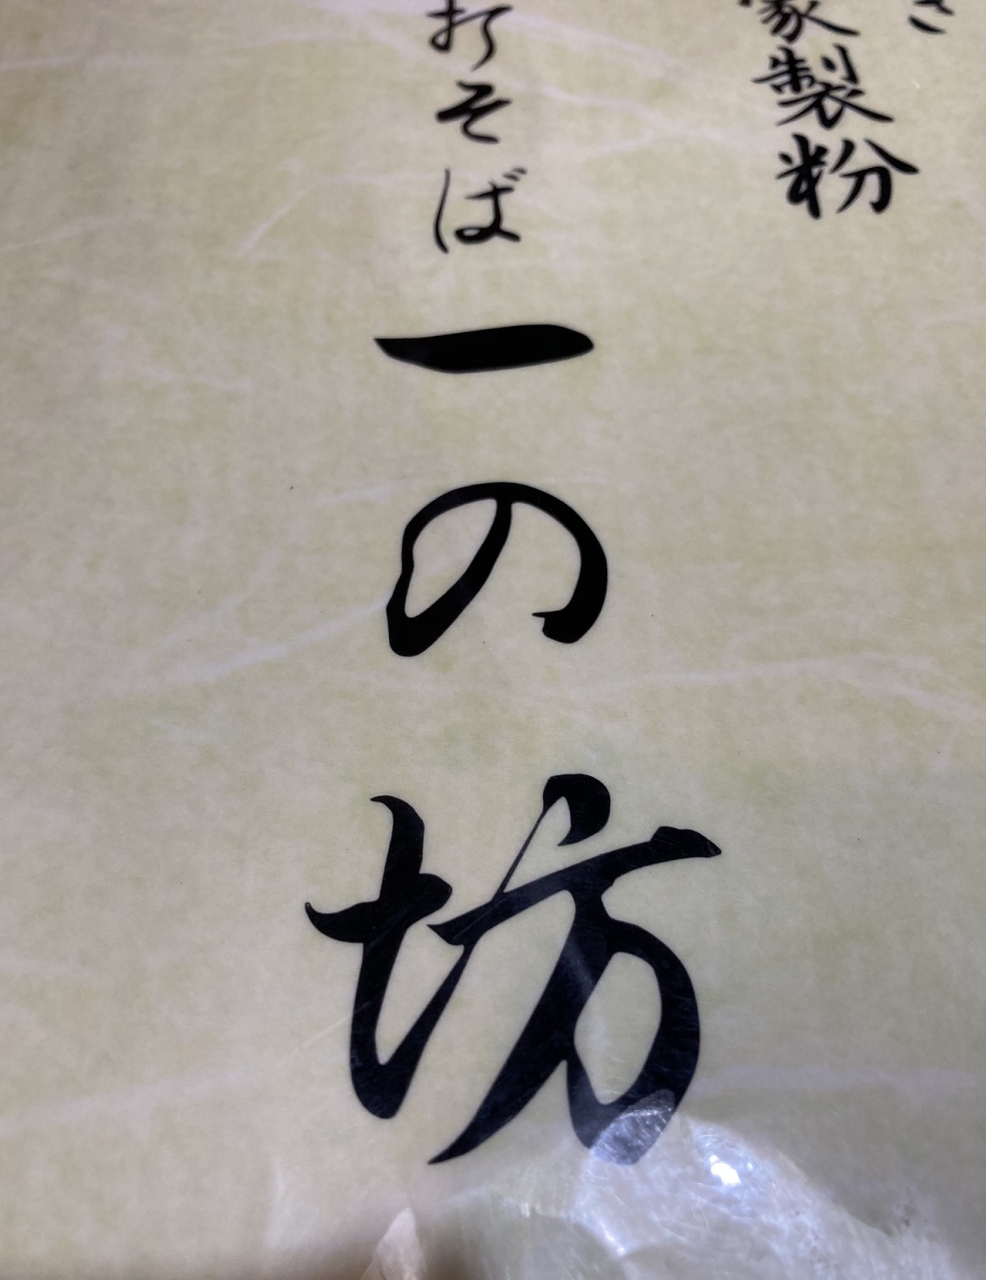 家製粉
打そば
一の坊